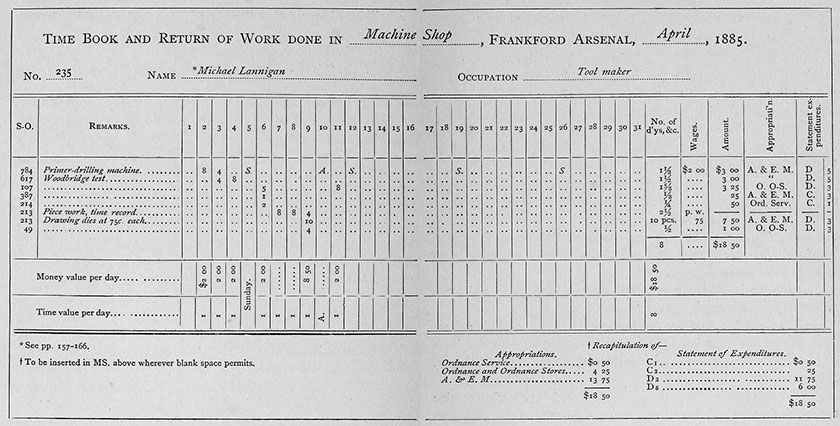 Time Book and Return of Work done in Machine Shop, Frankford Arsenal, April, 1885.
No. 235 Name *Michael Lannigan Occupation Tool maker
S-O. Remarks. 1 2 3 4 5 6 7 8 9 10 11 12 13 14 15 16 17 18 19 20 21 22 23 24 25 26 27 28 29 30 31 No. of d'ys, &c. Wages. Amount. Appropriati'n. Statement expenditures.
784 Primer-drilling machine. 8 4 S A S S S 1½ $2 00 $3 00 A. & E. M. D 5
617 Woodbridge test. 4 8 1½ 3 00 " D. 5
107 5 8 3 25 O. O-S. D. 3
387 1 25 A. & E. M. C. 3
214 2 50 Ord. Serv. C. 1
213 Piece work, time record. 8 8 4 2½ p. w.
213 Drawing dies at 75c. each. 10 10 pcs. 75 7 50 A. & E. M. D. 3
49 4 ½ 1 00 O. O-S. D. 3
8 $18 50
Money value per day $2 00 2 00 2 00 Sunday. 2 00 8 50 2 00 $18 50
Time value per day 1 1 1 1 1 1 1 A. 1 8
*See pp. 157-166.
† To be inserted in MS. above wherever blank space permits.
† Recapitulation of—
Appropriations. Statement of Expenditures.
Ordnance Service. $0 50 C1 $0 50
Ordnance and Ordnance Stores. 4 25 C3 25
A. & E. M. 13 75 D3 11 75
D5 6 00
$18 50 $18 50